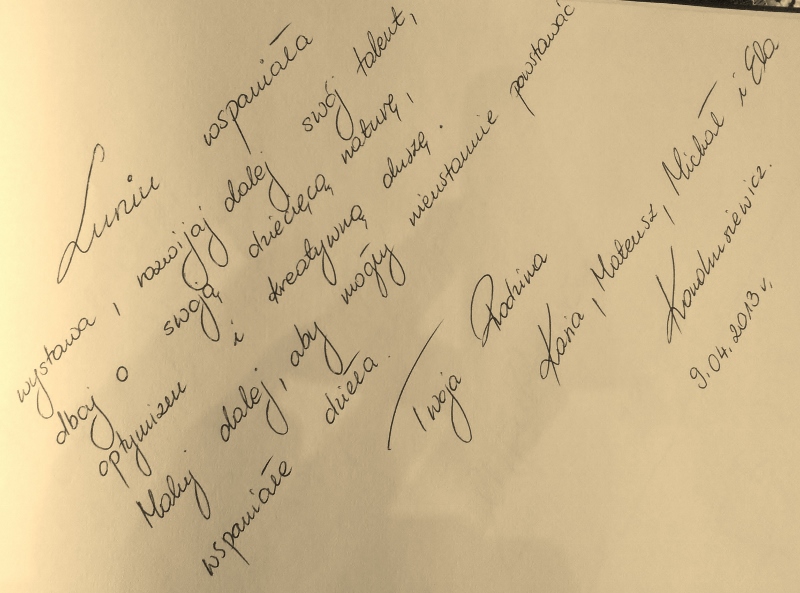 Luniu wspaniała
wystawa, rozwijaj dalej swój talent,
dbaj o swoją dziecięcą naturę,
optymizm i kreatywną duszę.
Maluj dalej, aby mogły nieustannie powstawać
wspaniałe dzieła.
Twoja Rodzina
Kasia, Mateusz, Michał i Ela
9.04.2013 r.